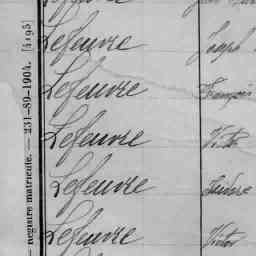 Lefeuvre Joseph
Lefeuvre François
Lefeuvre Victor
Lefeuvre Isidore
Lefeuvre Victor
registre matricule. — 231-89-1904. [4195]